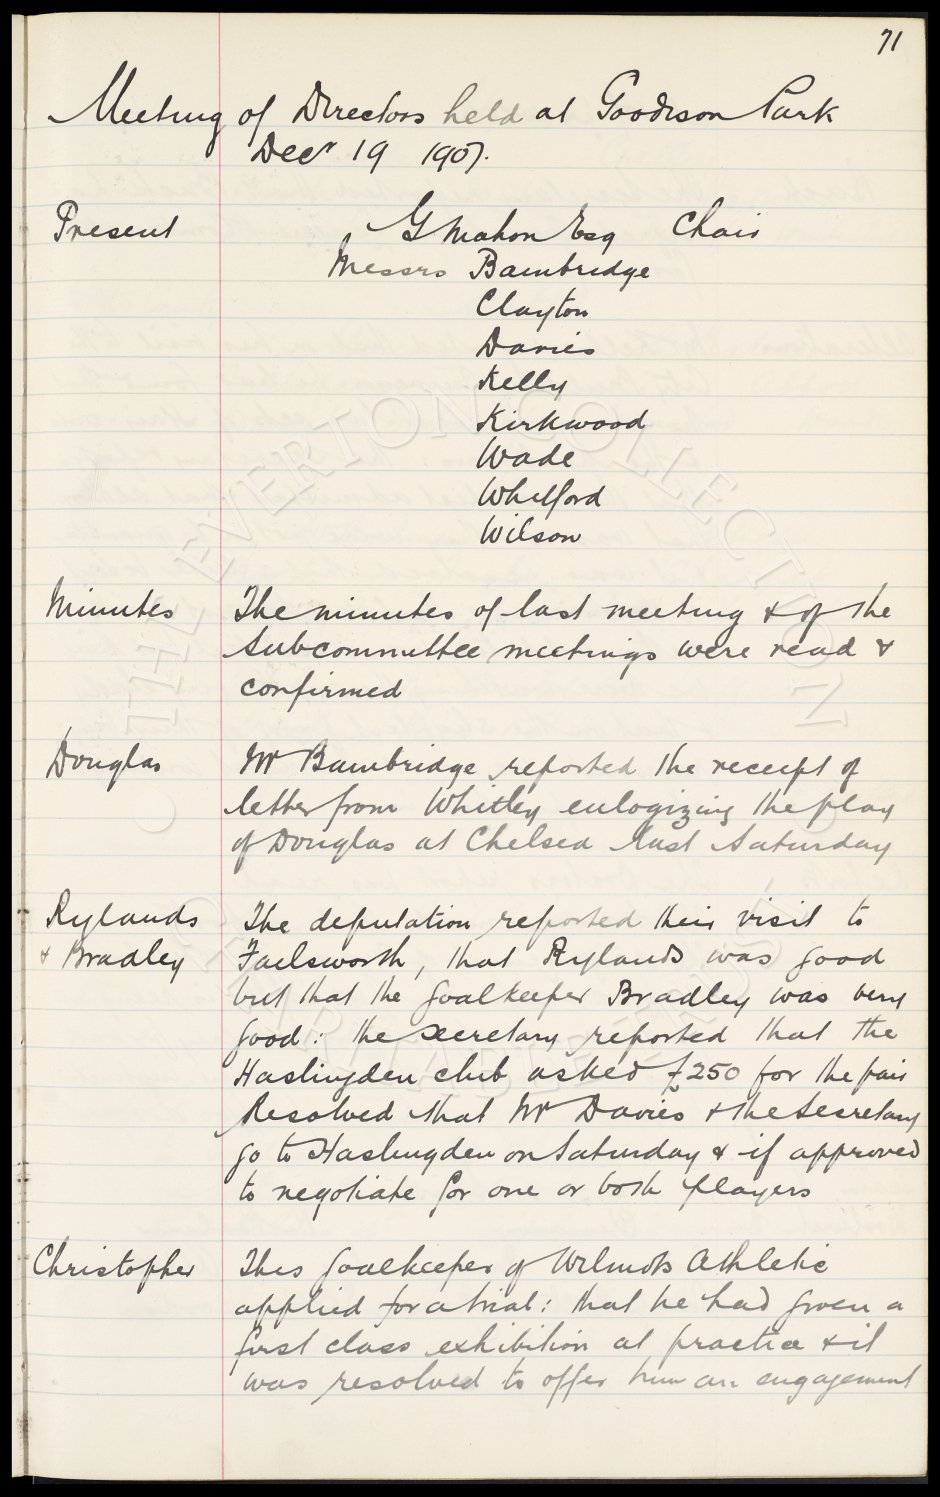 71
Meeting of Directors held at Goodison Park
Decr 19 1907.
Present G Mahon Esq Chair
Messrs Bainbridge
Clayton
Davies
Kelly
Kirkwood
Wade
Whitford
Wilson
Minutes The minutes of last meeting & of the
Subcommittee meetings were read &
confirmed
Douglas Mr Bainbridge reported the receipt of
letter from Whitley eulogizing the play
of Douglas at Chelsea last Saturday
Rylands The deputation reported their visit to
& Bradley Failsworth, that Rylands was good
but that the goalkeeper Bradley was very
good: the secretary reported that the
Haslingden club asked £250 for the pair
Resolved that Mr Davies & the Secretary
go to Haslingden on Saturday & if approved
to negotiate for one or both players
Christopher This goalkeeper of Wilmots Athletic
applied for a trial: that he had given a
first class exhibition at practice & it
was resolved to offer him an engagement
© THE EVERTON COLLECTION
CHARITABLE TRUST